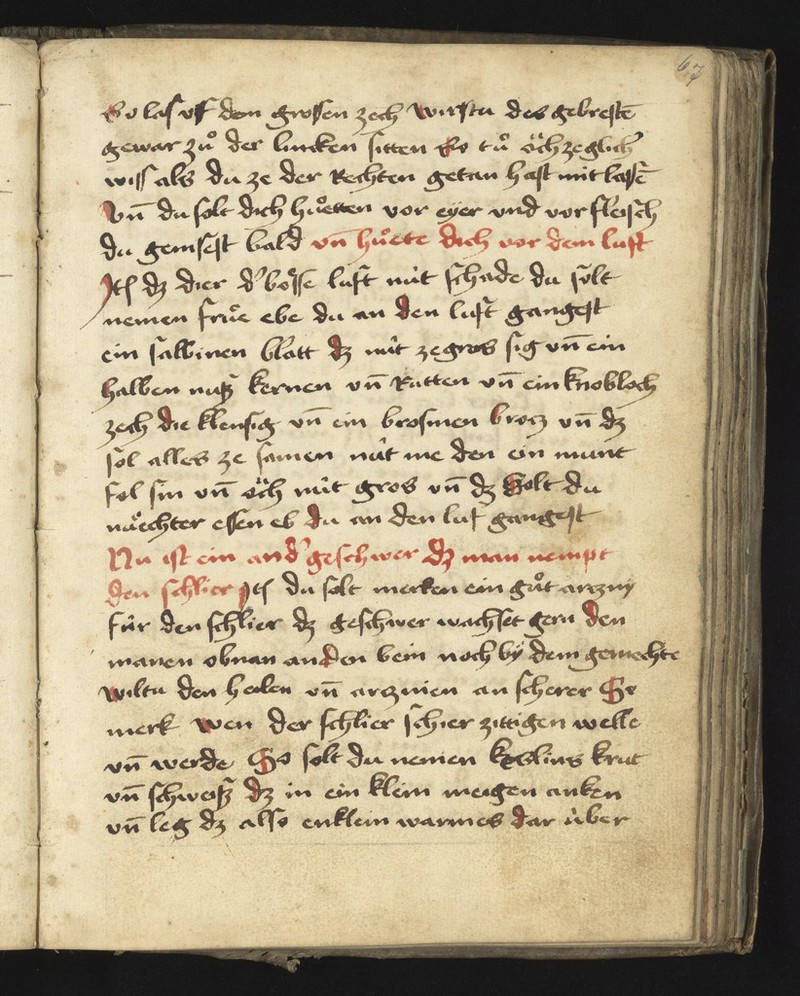 67
So las vff dem grossen zech wirstu des gebrestē
gewar zuͦ der lincken sitten So tuͦ oͤch zeglich'
wiss als du ze der Rechten getan hast mit lassē
Vn̄ du solt dich huͤetten vor eyer vnd vor fleisch
du genisest bald vn̄ huͤete dich vor dem luft
Itē dz dier d' boͤsse luft nüt schade du solt
nemen fruͤe ebe du an den luft gangest
ein salbinen blatt dz nüt ze gros sig vn̄ ein
halben nusz kernen vn̄ Rutten vn̄ ein knobloch
zech die klensig vn̄ ein brosmen brocz vn̄ dz
sol alles ze samen nüt me den ein munt
fol sin vn̄ oͤch nüt gros vn̄ dz Solt du
nuͤechter essen eb du an den luf gangest
Nu ist ein and' geschwer dz man nempt
den schlier Itē du solt merken ein guͦt arczny
für den schlier dz geschwer wachset gern den
manen obnan an den bein noch by dem gemechte
wiltu den heilen vn̄ arcznien an scherer So
merk wen der schlier schier zittigen welle
vn̄ werde So solt du nemen kesslins krut
vn̄ schweisz dz in ein klein meigen anken
vn̄ leg dz also enklein warmes dar über